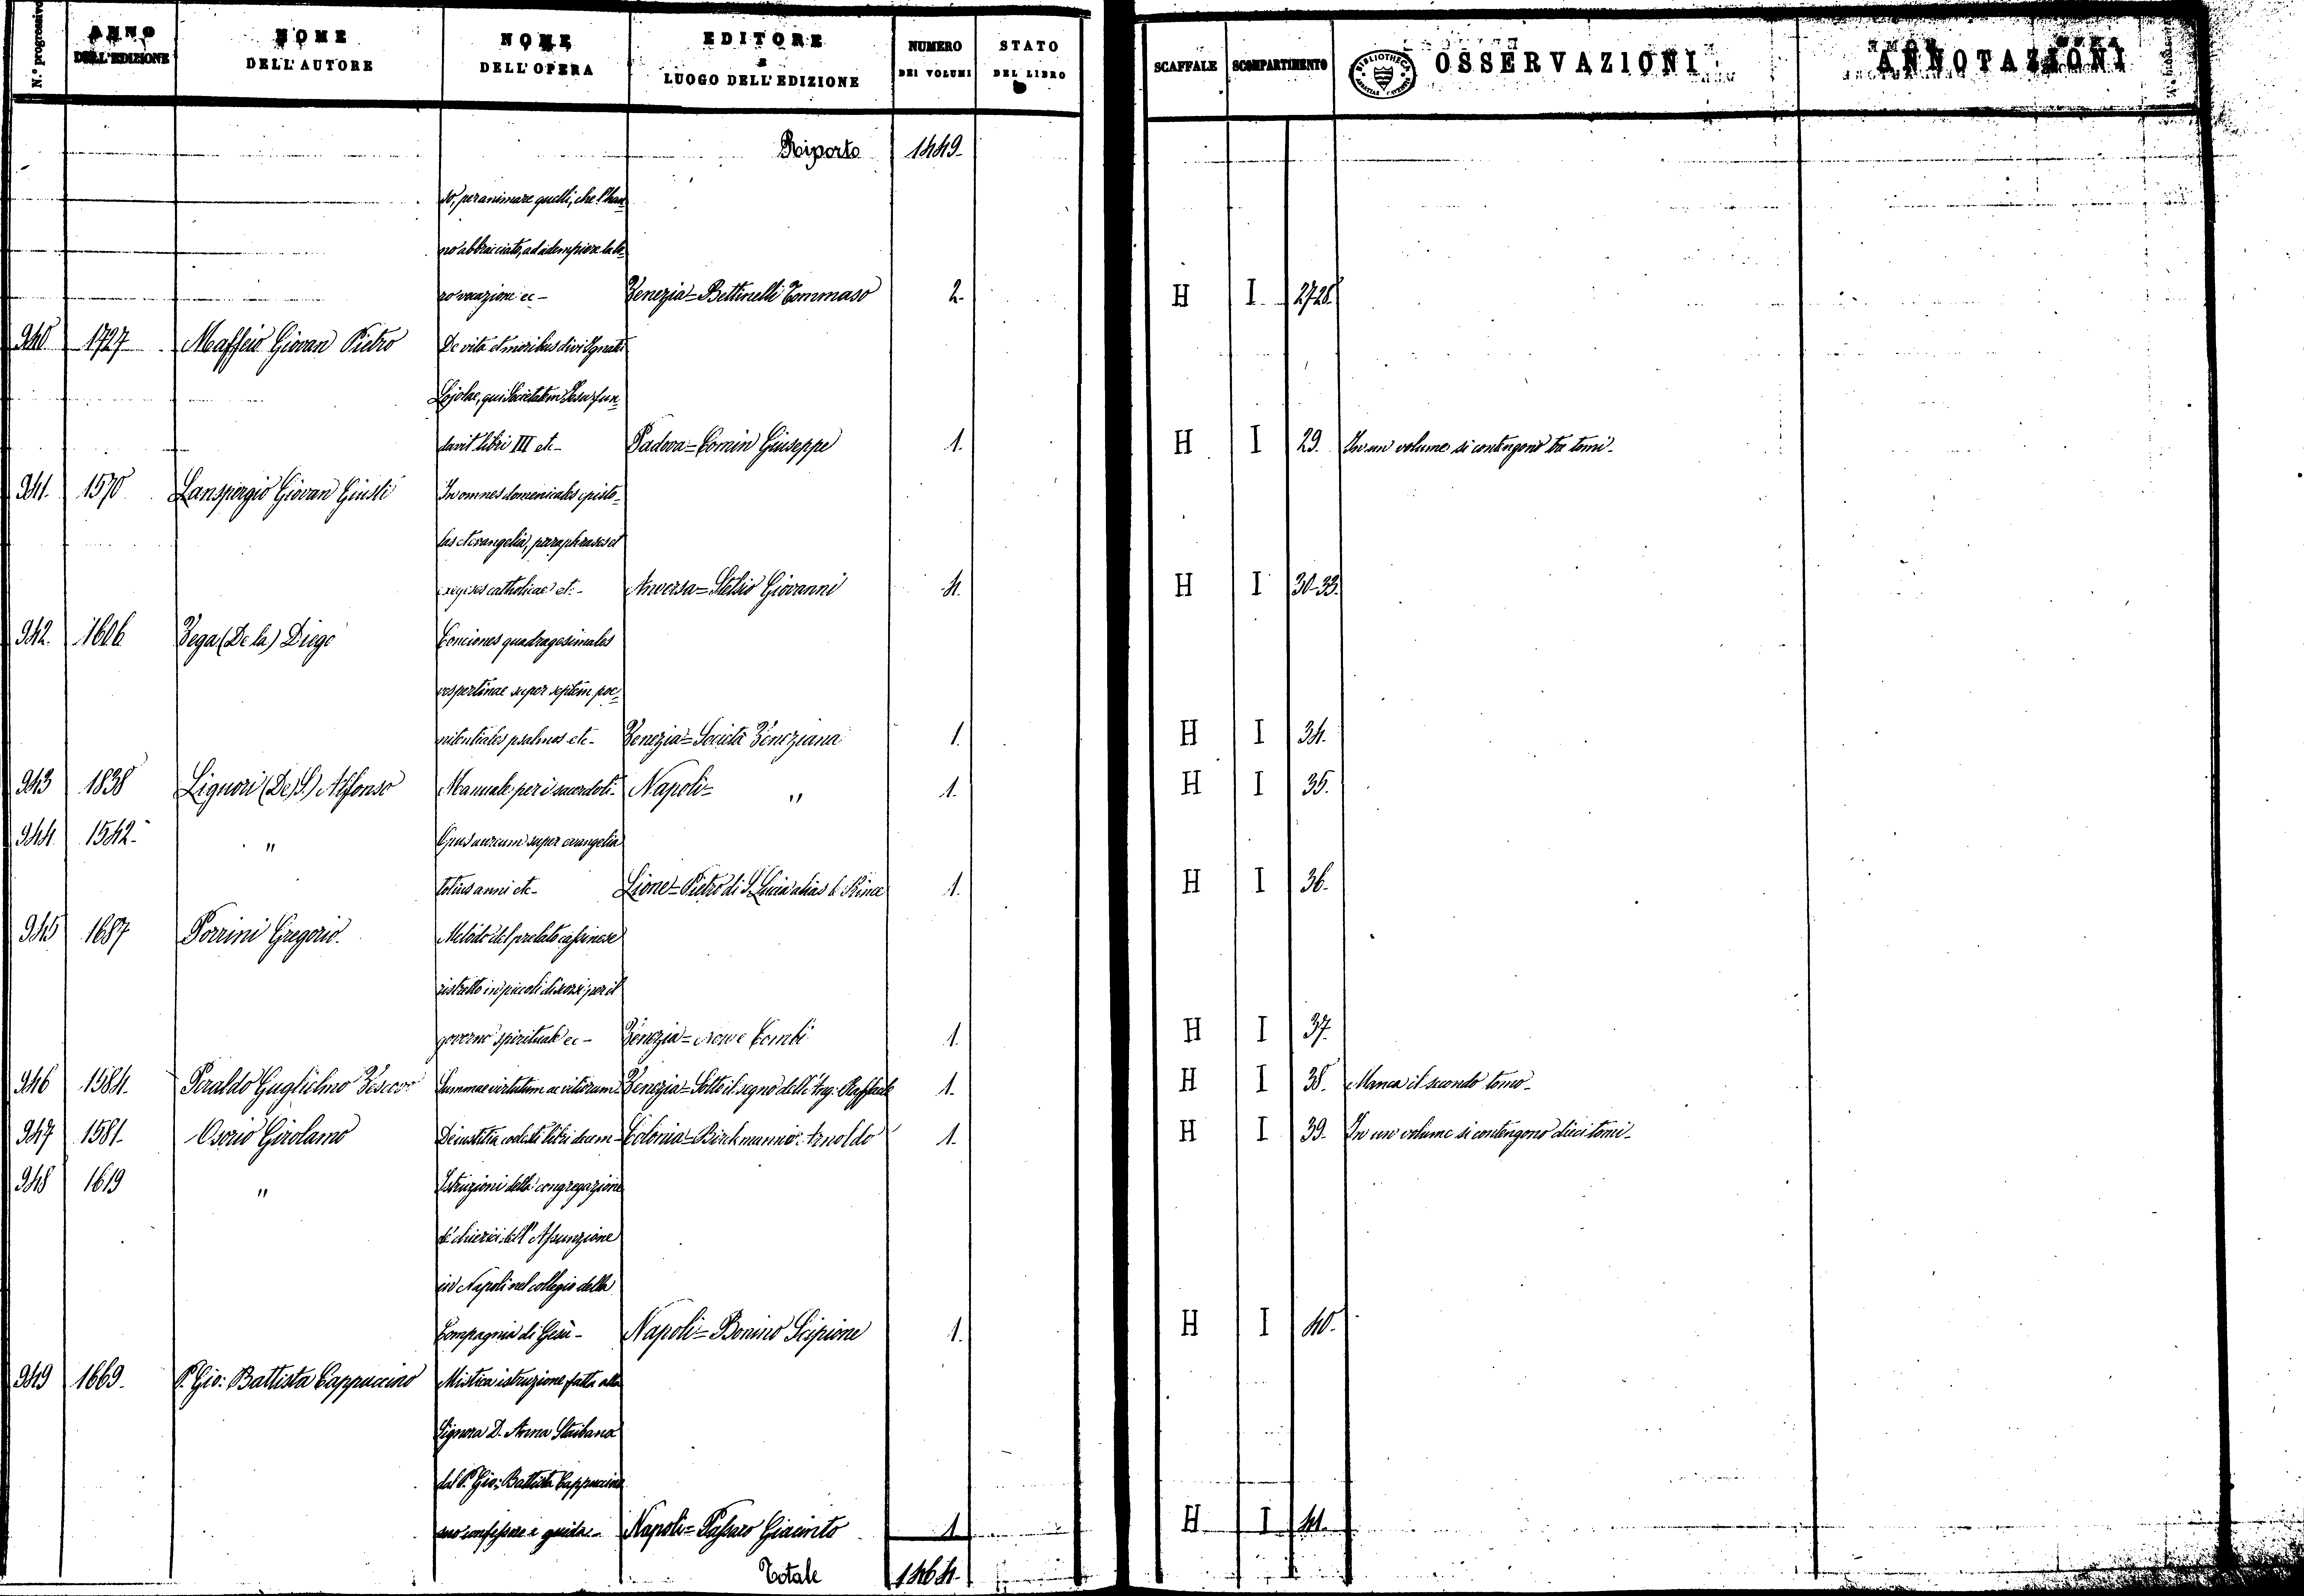 N.° progressivo ANNO DELL'EDIZIONE NOME DELL'AUTORE NOME DELL'OPERA EDITORE E LUOGO DELL'EDIZIONE NUMERO DEI VOLUMI STATO DEL LIBRO SCAFFALE SCOMPARTIMENTO OSSERVAZIONI ANNOTAZIONI
Riporto 1449.
to, per animare quelli, che l'han=
no abbracciato, ad adempiere la lo=
ro vocazione ec- Venezia= Bettinelli Tommaso 2. H I 27-28.
940 1727 Maffeio Giovan Pietro De vita et moribus divi Ignatii
Lojolae, qui Societatem Jesu fun=
davit libri III etc- Padova= Comin Giuseppe 1. H I 29. In un volume si contengono tre tomi-
941. 1570 Lanspergio Giovan Giusti In omnes domenicales episto=
las et evangelia, paraphrases et
exegises catholicae etc- Anversa= Stelsio Giovanni 4. H I 30-33.
942. 1606 Vega (De la) Diego Conciones quadragesimales
vespertinae super septem poe=
nitentiales psalmos etc- Venezia= Società Veneziana 1. H I 34.
943 1838 Liguori (De) S.) Alfonso Manuale per i sacerdoti- Napoli= " 1. H I 35.
944. 1542- " Opus aureum super evangelia
totius anni etc- Lione= Pietro di S. Lucia alias le Prince 1. H I 36.
945 1687 Porrini Gregorio. Metodo del prelato cassinese
ristretto in piccoli discorsi per il
governo spirituale ec- Venezia= Combi 1. H I 37.
946 1584. Peraldo Guglielmo Vescovo Summae virtutum ac vitiorum Venezia= Sotto il segno dell'Ang: Raffaele 1. H I 38. Manca il secondo tomo-
947 1581- Osorio Girolamo De iustitia coelesti libri decem- Colonia= Birkmannio Arnoldo 1. H I 39. In un volume si contengono dieci tomi-
948 1619 " Istruzioni della congregazione
de' chierici dell'Assunzione
in Napoli nel collegio della
Compagnia di Gesù- Napoli= Bonino Scipione 1. H I 40.
949 1669. P. Gio: Battista Cappuccino Mistica istruzione fatta alla
Signora D. Anna Staibana
dal P. Gio: Battista Cappuccino
suo confessore e guida- Napoli= Passaro Giacinto 1 H I 41.
Totale 1464.